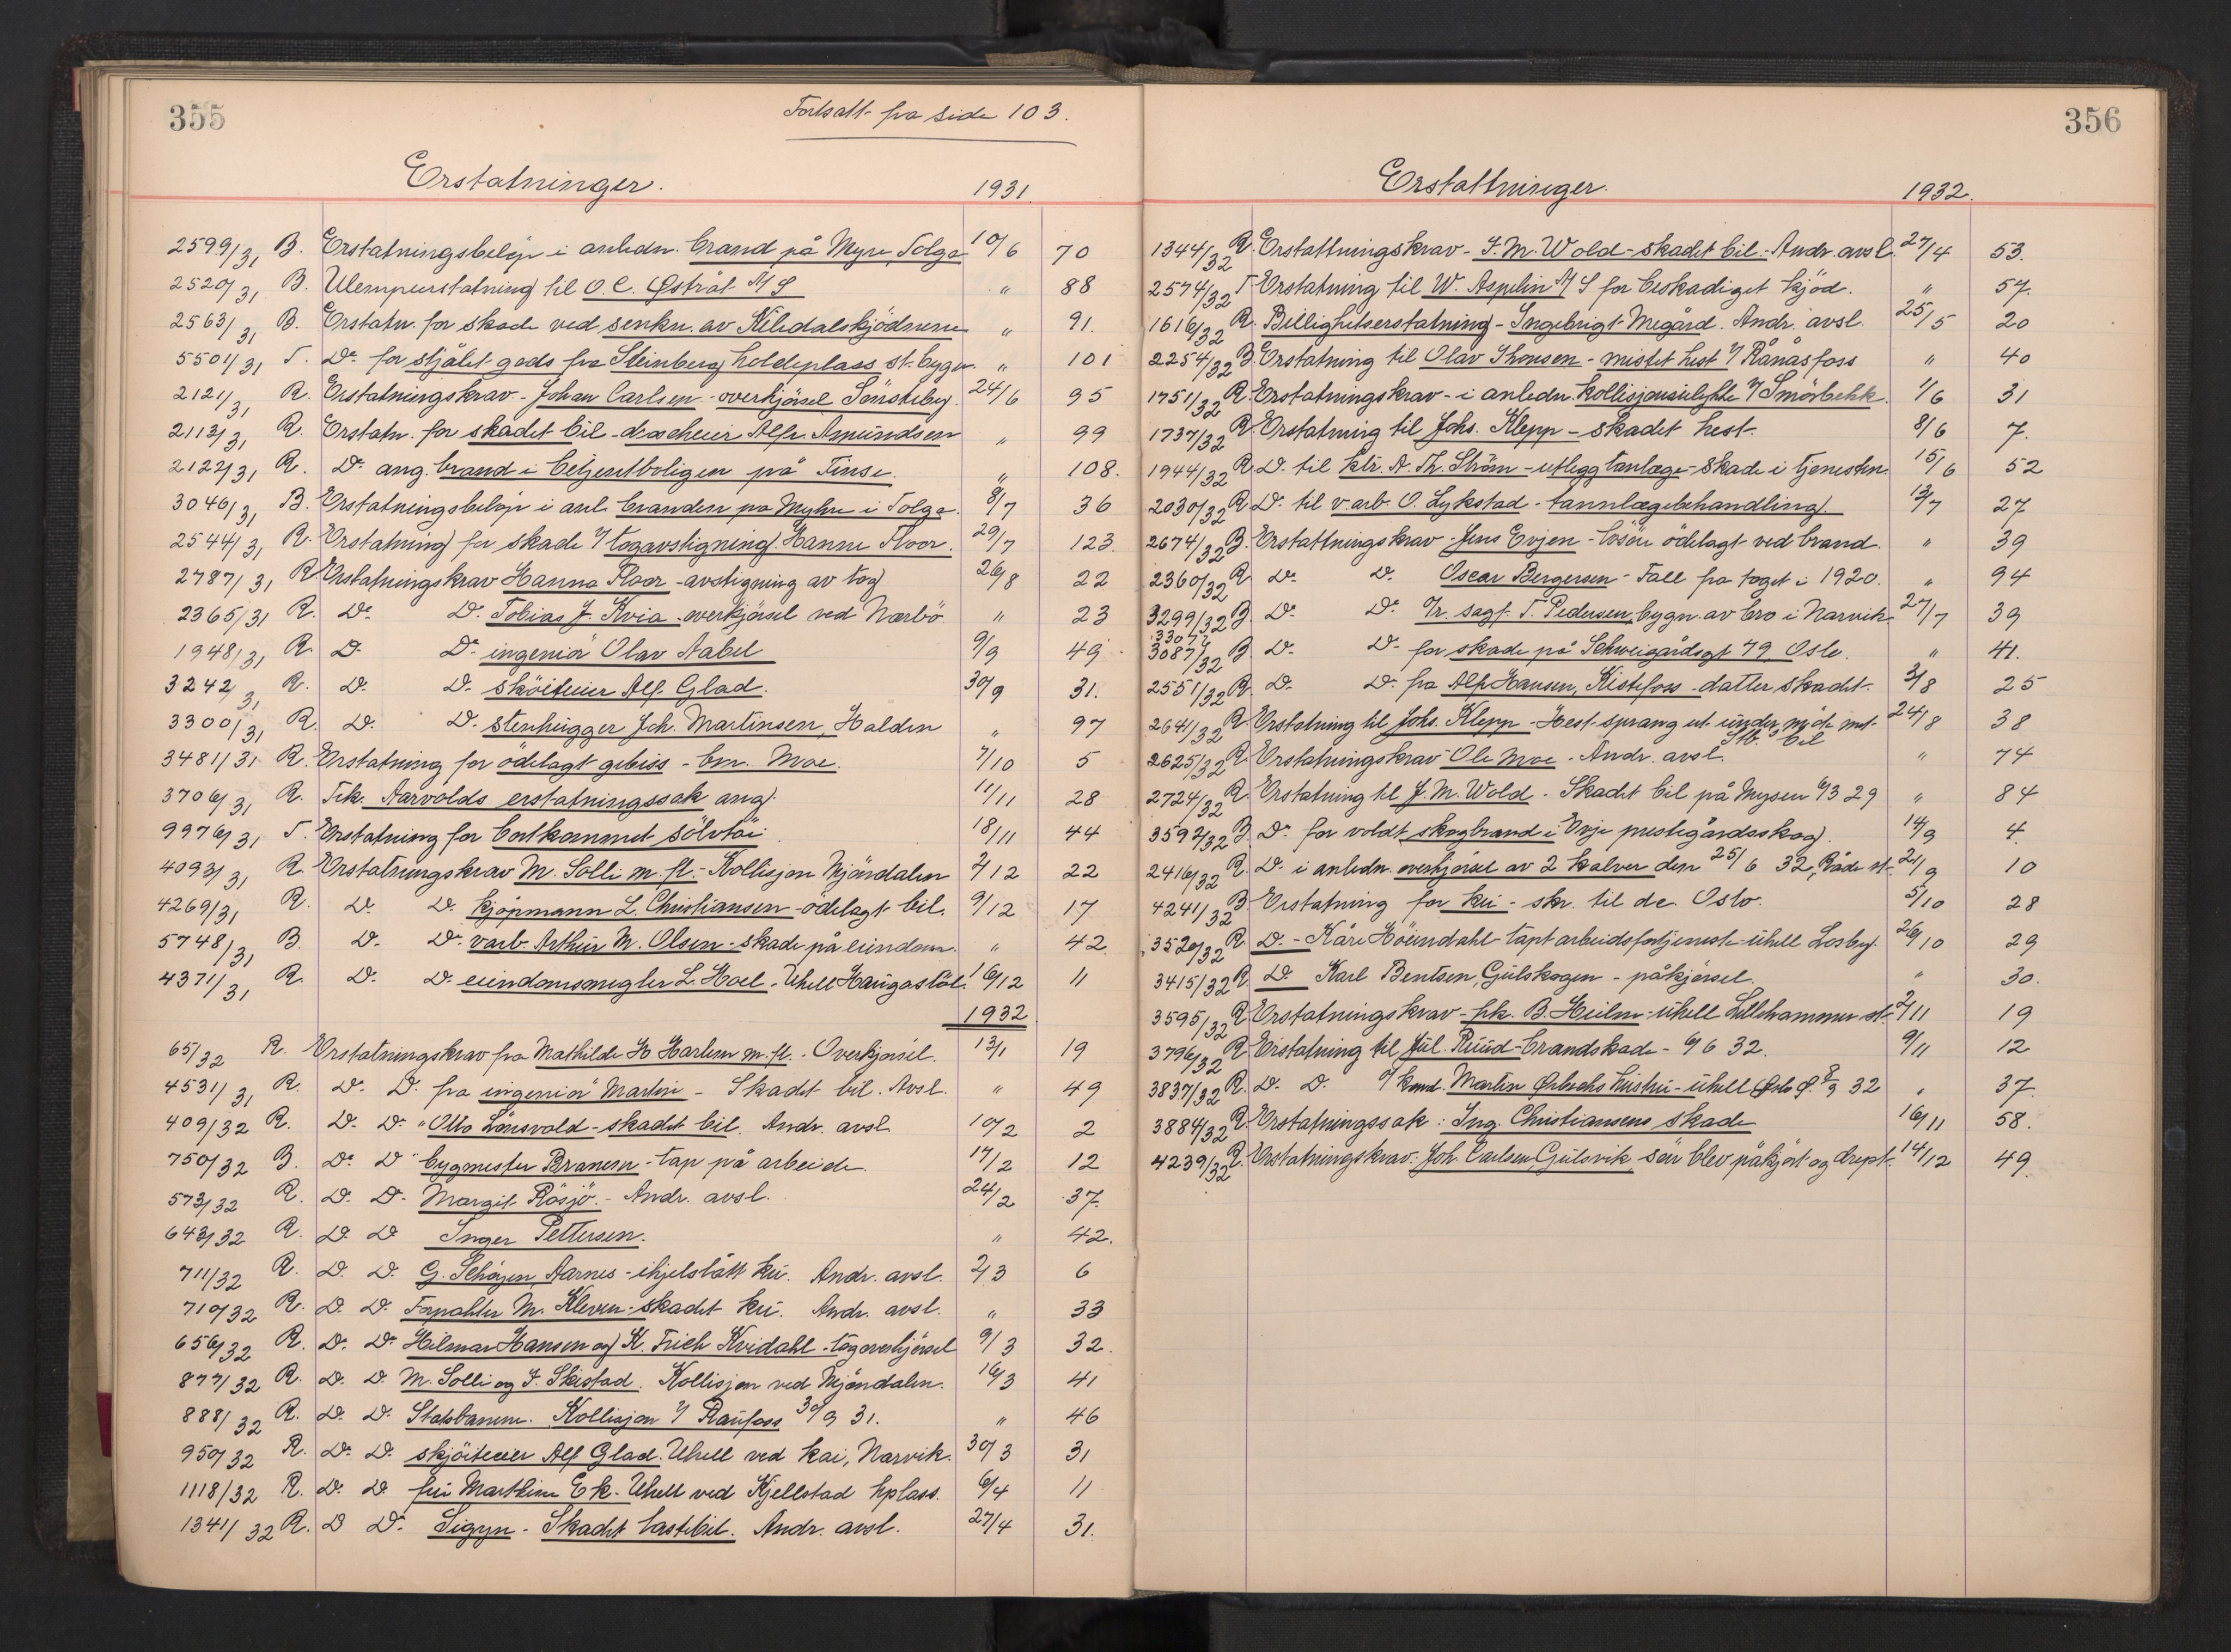 355
Fortsatt fra side 103.
Erstatninger.
1931.
2599/31 B. Erstatningsbeløp i anledn. brand på Myre, Tolga 10/6 70
2520/31 B. Ulempeerstatning til O.C. Østråt A/S " 88
2563/31 B. Erstatn. for skade ved senkn. av Kiledalskjödnene " 91.
5501/31 T. Do for stjålet gods fra Steinberg holdeplass st. bygn. " 101
2121/31 R. Erstatningskrav - Johan Carlsen - overkjörsel Sönsteby. 24/6 95
2113/31 R. Erstatn. for skadet bil - droscheeier Alfr. Amundsen " 99
2122/31 R. Do ang. brand i betjentboligen på Finse. " 108.
3046/31 B. Erstatningsbeløp i anl. branden på Myhre i Tolga. 8/7 36
2544/31 R. Erstatning for skade v/ togavstigning. Hanne Floor. 29/7 123.
2787/31 R. Erstatningskrav Hanna Floor - avstigning av tog 26/8 22
2365/31 R. Do Do Tobias J. Kvia - overkjörsel ved Nærbö " 23
1948/31 R. Do Do ingeniör Olav Aabel 9/9 49
3242/31 R. Do Do sköiteeier Alf. Glad. 30/9 31.
3300/31 R. Do Do stenhugger Joh. Martinsen, Halden " 97
3481/31 R. Erstatning for ödelagt gebiss - bm. Moe. 7/10 5
3706/31 R. Tek. Aarvolds erstatningssak ang. 11/11 28
9976/31 T. Erstatning for bortkommet sölvtöi 18/11 44
4093/31 R. Erstatningskrav M. Solli m. fl. - Kollisjon Mjöndalen 2/12 22
4269/31 R. Do Do kjöpmann L. Christiansen - ödelagt bil. 9/12 17
5748/31 B. Do Do varb. Arthur M. Olsen - skade på eiendom. " 42
4371/31 R. Do Do eiendomsmegler L. Hoel. Uhell Haugastöl. 16/12 11
1932
65/32 R. Erstatningskrav fra Mathilde H Harlem m. fl. - Overkjörsel. 13/1 19
4531/31 R. Do Do fra ingeniör Martin - Skadet bil. Avsl. " 49
409/32 R. Do Do " Otto Lönsvold - skadet bil. Andr. avsl. 10/2 2
750/32 B. Do Do bygmester Branem - tap på arbeide 17/2 12
573/32 R. Do Do Margit Rösjö. - Andr. avsl. 24/2 37.
643/32 R. Do Do Inger Pettersen. " 42.
711/32 R. Do Do G. Schöyen, Aarnes - ihjelslått ku. Andr. avsl. 2/3 6
710/32 R. Do Do Forpakter M. Kleven - skadet ku. Andr. avsl. " 33
656/32 R. Do Do Hilmar Hansen og K. Trick Kvidahl - togoverkjörsel 9/3 32.
877/32 R. Do Do M. Solli og J. Skistad. Kollisjon ved Mjöndalen. 16/3 41
888/32 R. Do Do Statsbanene. Kollisjon v/ Raufoss 30/9 31. " 46
950/32 R. Do Do skjöiteeier Alf Glad. Uhell ved kai, Narvik. 30/3 31
1118/32 R. Do Do fru Marthine Ek - Uhell ved Kjellstad hplass. 6/4 11
1341/32 R. Do Do Sigyn - Skadet lastebil. Andr. avsl. 27/4 31.
356
Erstattninger.
1932.
1344/32 R. Erstattningskrav - J. M. Wold - skadet bil. - Andr. avsl. 27/4 53.
2574/32 T Erstatning til W. Aspelin A/S for beskadiget kjöd. " 57.
1616/32 R. Billighetserstatning - Ingebrigt Megård. Andr. avsl. 25/5 20
2254/32 B. Erstatning til Olav Thonsen - mistet hest v/ Rånåsfoss " 40
1751/32 R. Erstatningskrav - i anledn. kollisjonsulykke v/ Smörbekk. 1/6 31
1737/32 R. Erstatning til Johs. Klepp - skadet hest. 8/6 7.
1944/32 R. Do til ktr. A. Th. Ström - utlegg tanlæge - skade i tjenesten. 15/6 52
2030/32 R. Do til v.arb. O. Lykstad - tannlægebehandling. 13/7 27
2674/32 B. Erstattningskrav - Jens Evjen - lösöre ödelagt ved brand. " 39
2360/32 R. Do Do Oscar Bergersen - Fall fra toget i 1920. " 94
3299/32 B. Do Do Or. sagf. T. Pedersen, bygn. av bro i Narvik. 27/7 39
3307/
3087/32 B. Do Do for skade på Schweigårdsgt 79, Oslo. " 41.
2551/32 R. Do Do fra Alf Hansen, Kistefoss - datter skadet. 3/8 25
2641/32 R. Erstatning til Johs. Klepp - Hest sprang ut under möte mot 24/8 38
Stb. bil
2625/32 R. Erstatningskrav Ole Moe - Andr. avsl. " 74
2724/32 R. Erstatning til J. M. Wold - Skadet bil på Mysen 6/3 29 " 84
3592/32 B. Do for voldt skogbrand i Evje prestegårdsskog. 14/9 4.
2416/32 R. Do i anledn. overkjörsel av 2 kalver den 25/6 32, Råde st. 21/9 10
4241/32 B. Erstatning for ku - skr. til dc. Oslo. 5/10 28
3520/32 R. Do - Kåre Höiendahl - tapt arbeidsfortjeneste - uhell Losby. 26/10 29
3415/32 R. Do Karl Bentsen, Gulskogen - påkjörsel. " 30.
3595/32 R. Erstatningskrav - pk. B. Heilm - uhell Lillehammer st. 2/11 19
3796/32 R. Erstatning til Jul. Ruud - brandskade - 6/6 32. 9/11 12
3837/32 R. Do Do v/ kond. Martin Ørbechs hustru - uhell Oslo Ø. 8/9 32 " 37.
3884/32 R. Erstatningssak: Ing. Christiansens skade 16/11 58.
4239/32 R. Erstatningskrav: Joh. Carlsen, Gulsvik, sön blev påkjört og drept. 14/12 49.